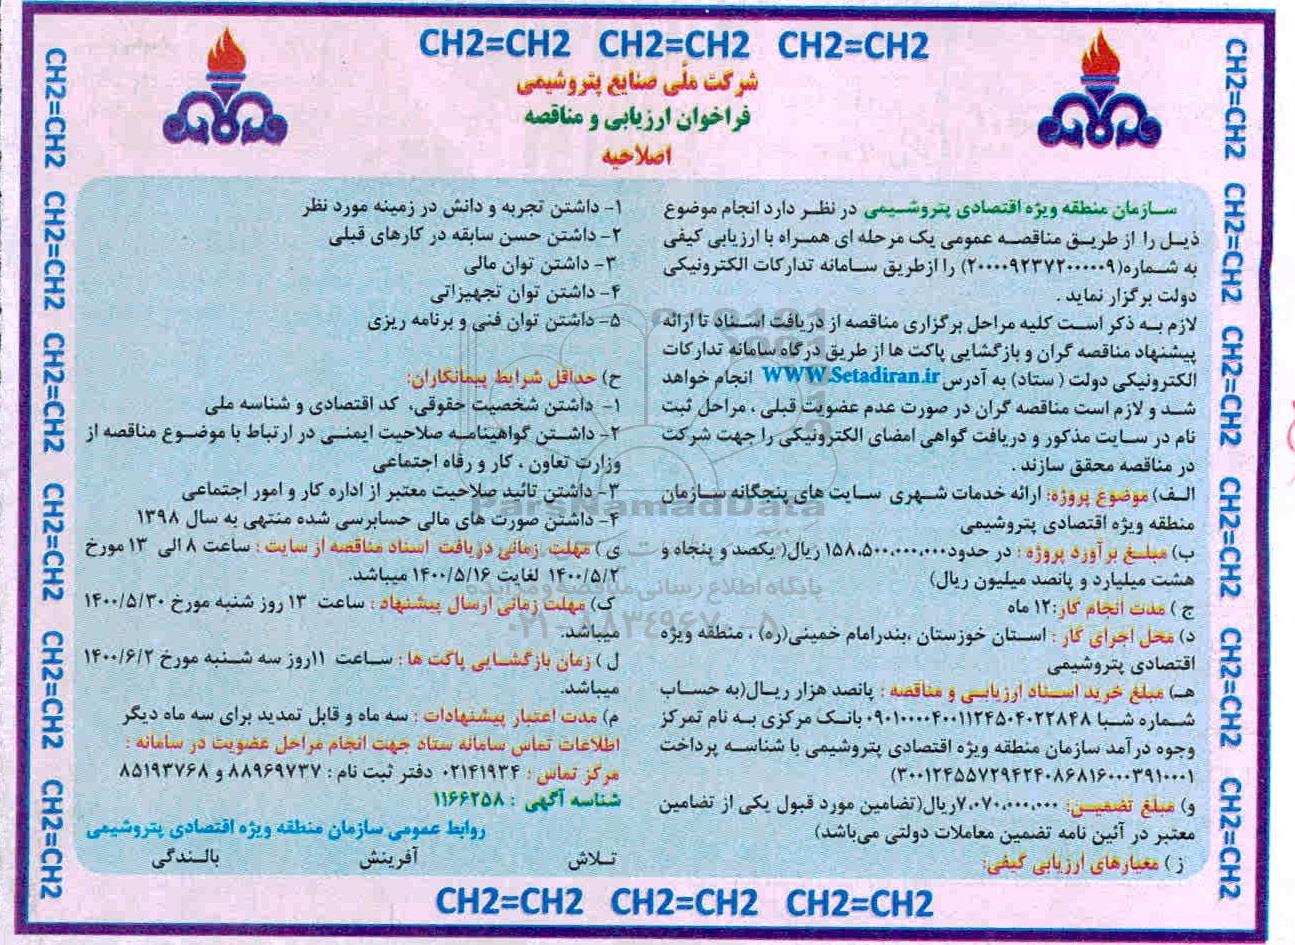 CH2=CH2 CH2=CH2 CH2=CH2
شرکت ملّی صنایع پتروشیمی
فراخوان ارزیابی و مناقصه
اصلاحیه
سازمان منطقه ویژه اقتصادی پتروشیمی در نظر دارد انجام موضوع
ذیل را از طریق مناقصه عمومی یک مرحله ای همراه با ارزیابی کیفی
به شماره(۲۰۰۰۰۹۲۳۷۲۰۰۰۰۰۹) را ازطریق سامانه تدارکات الکترونیکی
دولت برگزار نماید .
لازم به ذکر است کلیه مراحل برگزاری مناقصه از دریافت اسناد تا ارائه
پیشنهاد مناقصه گران و بازگشایی پاکت ها از طریق درگاه سامانه تدارکات
الکترونیکی دولت ( ستاد) به آدرس WWW.Setadiran.ir انجام خواهد
شد و لازم است مناقصه گران در صورت عدم عضویت قبلی ، مراحل ثبت
نام در سایت مذکور و دریافت گواهی امضای الکترونیکی را جهت شرکت
در مناقصه محقق سازند .
الف) موضوع پروژه: ارائه خدمات شهری سایت های پنجگانه سازمان
منطقه ویژه اقتصادی پتروشیمی
ب) مبلغ برآورد پروژه : در حدود۱۵۸،۵۰۰،۰۰۰،۰۰۰ ریال( یکصد و پنجاه و
هشت میلیارد و پانصد میلیون ریال)
ج ) مدت انجام کار:۱۲ ماه
د) محل اجرای کار : استان خوزستان ،بندرامام خمینی(ره) ، منطقه ویژه
اقتصادی پتروشیمی
هـ) مبلغ خرید اسناد ارزیابی و مناقصه : پانصد هزار ریال(به حساب
شماره شبا ۰۹۰۱۰۰۰۰۴۰۰۱۱۲۴۵۰۴۰۲۲۸۴۸ بانک مرکزی به نام تمرکز
وجوه درآمد سازمان منطقه ویژه اقتصادی پتروشیمی با شناسه پرداخت
۳۰۰۱۲۴۵۵۷۲۹۴۲۴۰۸۶۸۱۶۰۰۰۳۹۱۰۰۰۱)
و) مبلغ تضمین: ۷،۰۷۰،۰۰۰،۰۰۰ریال(تضامین مورد قبول یکی از تضامین
معتبر در آئین نامه تضمین معاملات دولتی می‌باشد)
ز ) معیارهای ارزیابی کیفی:
۱- داشتن تجربه و دانش در زمینه مورد نظر
۲- داشتن حسن سابقه در کارهای قبلی
۳- داشتن توان مالی
۴- داشتن توان تجهیزاتی
۵- داشتن توان فنی و برنامه ریزی
ح) حداقل شرایط پیمانکاران:
۱- داشتن شخصیت حقوقی، کد اقتصادی و شناسه ملی
۲- داشتن گواهینامه صلاحیت ایمنی در ارتباط با موضوع مناقصه از
وزارت تعاون ، کار و رفاه اجتماعی
۳- داشتن تائید صلاحیت معتبر از اداره کار و امور اجتماعی
۴- داشتن صورت های مالی حسابرسی شده منتهی به سال ۱۳۹۸
ی ) مهلت زمانی دریافت اسناد مناقصه از سایت : ساعت ۸ الی ۱۳ مورخ
۱۴۰۰/۵/۲ لغایت ۱۴۰۰/۵/۱۶ میباشد.
ک) مهلت زمانی ارسال پیشنهاد : ساعت ۱۳ روز شنبه مورخ ۱۴۰۰/۵/۳۰
میباشد.
ل ) زمان بازگشایی پاکت ها : ساعت ۱۱روز سه شنبه مورخ ۱۴۰۰/۶/۲
میباشد.
م) مدت اعتبار پیشنهادات : سه ماه و قابل تمدید برای سه ماه دیگر
اطلاعات تماس سامانه ستاد جهت انجام مراحل عضویت در سامانه :
مرکز تماس : ۰۲۱۴۱۹۳۴ دفتر ثبت نام : ۸۸۹۶۹۷۳۷ و ۸۵۱۹۳۷۶۸
شناسه آگهی : ۱۱۶۶۲۵۸
روابط عمومی سازمان منطقه ویژه اقتصادی پتروشیمی
تلاش آفرینش بالندگی
CH2=CH2 CH2=CH2 CH2=CH2
CH2=CH2 CH2=CH2 CH2=CH2 CH2=CH2 CH2=CH2 CH2=CH2
CH2=CH2 CH2=CH2 CH2=CH2 CH2=CH2 CH2=CH2 CH2=CH2
ParsNamadData
پایگاه اطلاع رسانی مناقصه و مزایده
۰۲۱-۸۸۳۴۹۶۷۰-۵